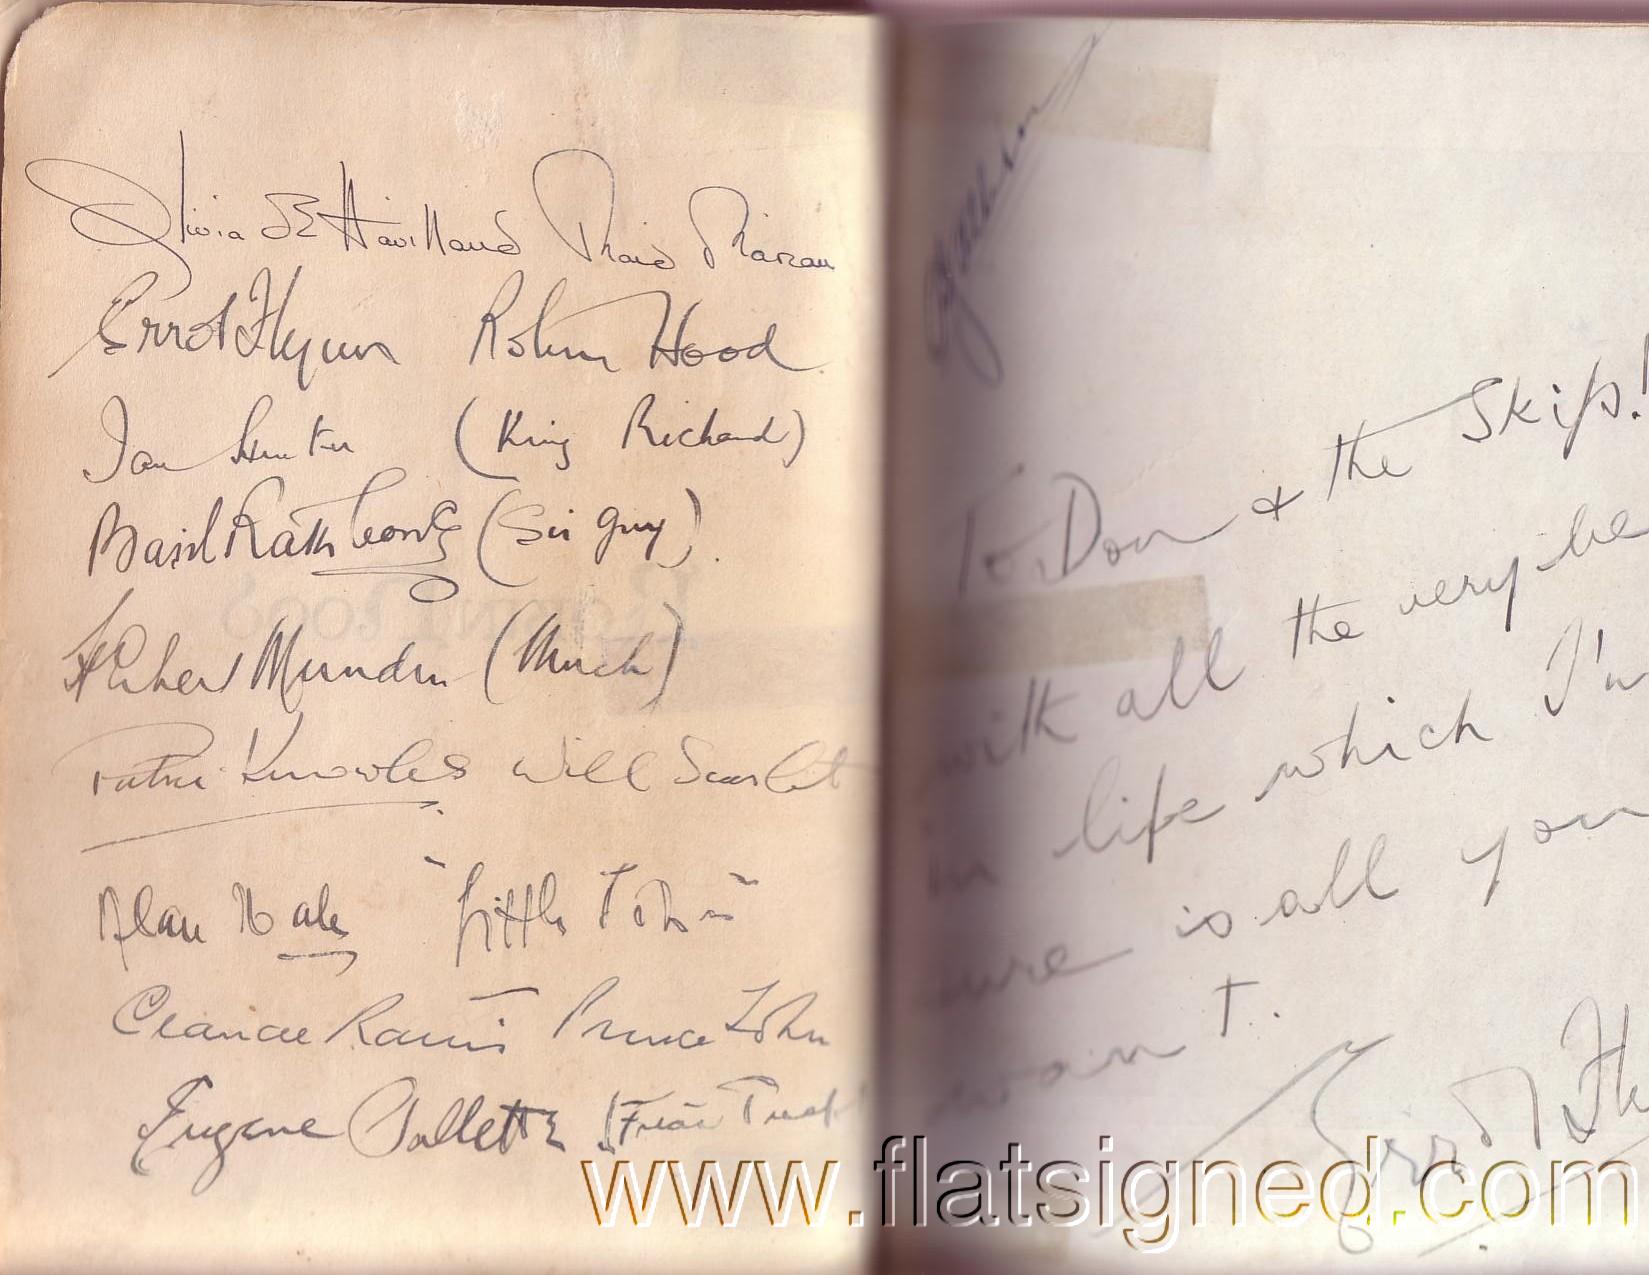 Olivia de Havilland Maid Marian
Errol Flynn Robin Hood
Ian Hunter (King Richard)
Basil Rathbone (Sir Guy).
Herbert Mundin (Much)
Patric Knowles Will Scarlet
Alan Hale "Little John"
Claude Rains Prince John
Eugene Pallette (Friar Tuck
To Don & the Skip!
with all the very be
in life which I'm
sure is all you
want.
Errol Fly
www.flatsigned.com